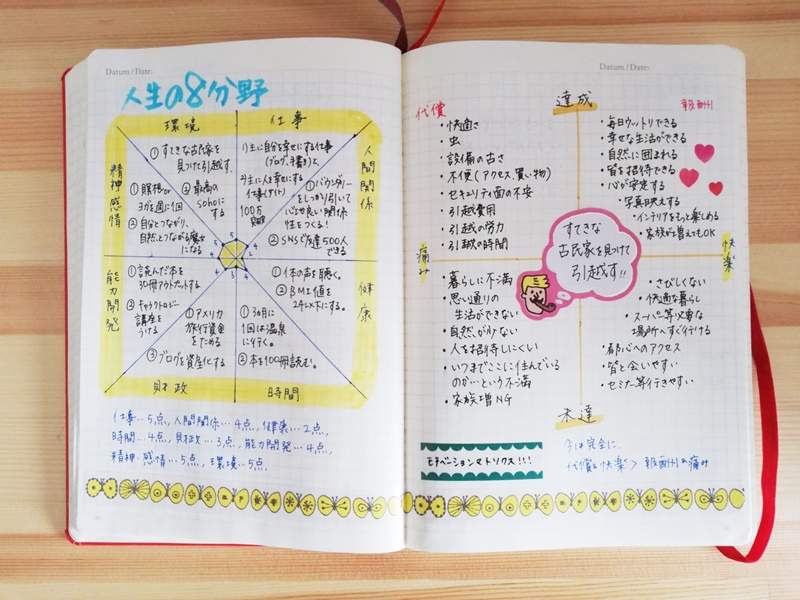 Datum / Date:
人生の8分野
環境
仕事
人間関係
健康
時間
財政
能力開発
精神感情
①すてきな古民家を
見つけて引越す。
②最高の
SOHOに
する
1)主に自分を幸せにする仕事
(ブログ、手書き)と、
2)主に人を幸せする
仕事(サイト)
100万
①バウンダリー
をしっかり引いて
心地良い関係
性をつくる!
②SNSで友達500人
できる
①瞑想or
ヨガを週に1回
②自分とつながり、
自然とつながる魔女
になる
5
5
4
2
4
3
4
5
①読んだ本を
30冊アウトプットする
②キャラクトロジー
講座を
うける
①アメリカ
旅行資金を
をためる
③ブログを資産化する
①体の声を聴く。
②BMI値を
24以下にする。
①3ヵ月に
1回は温泉
に行く。
②本を100冊読む。
仕事…5点、人間関係…4点、健康…2点、
時間…4点、財政…3点、能力開発…4点、
精神・感情…5点、環境…5点、
Datum / Date:
達成
代償
報酬
・快適さ
・虫
・設備の古さ
・不便(アクセス、買い物)
・セキュリティ面の不安
・引越費用
・引越の労力
・引越の時間
・毎日ウットリできる
・幸せな生活ができる
・自然に囲まれる
・皆を招待できる
・心が安定する
・写真映えする
・インテリアをもっと楽しめる
・家族が増えてもOK
痛み
快楽
すてきな
古民家を見つけて
引越す!!
・暮らしに不満
・思い通りの
生活ができない
・自然が少ない
・人を招待しにくい
・いつまでここに住んでいる
のか…という不満
・家族増NG
・さびしくない
・快適な暮らし
・スーパー等必要な
場所へすぐ行ける
・都心へのアクセス
・皆と会いやすい
・セミナー等行きやすい
未達
モチベーションマトリクス!!!
今は完全に、
代償&快楽>報酬&痛み